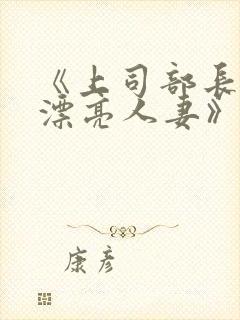 《上司部长
漂亮人妻》
康彦